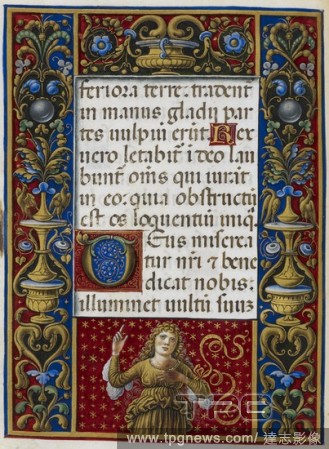 feriora terre: tradent̄
in manus gladij par
tes uulpiū erūt Rex
uero letabit̄ i deo lau
bunt om̄s qui iurāt
in eo: quia obstructū
est os loquentiū iniq̄
Deus miserea
tur nr̄i & bene
dicat nobis:
illuminet uultū suuʒ
TPG
www.tpgnews.com/ 達志影像